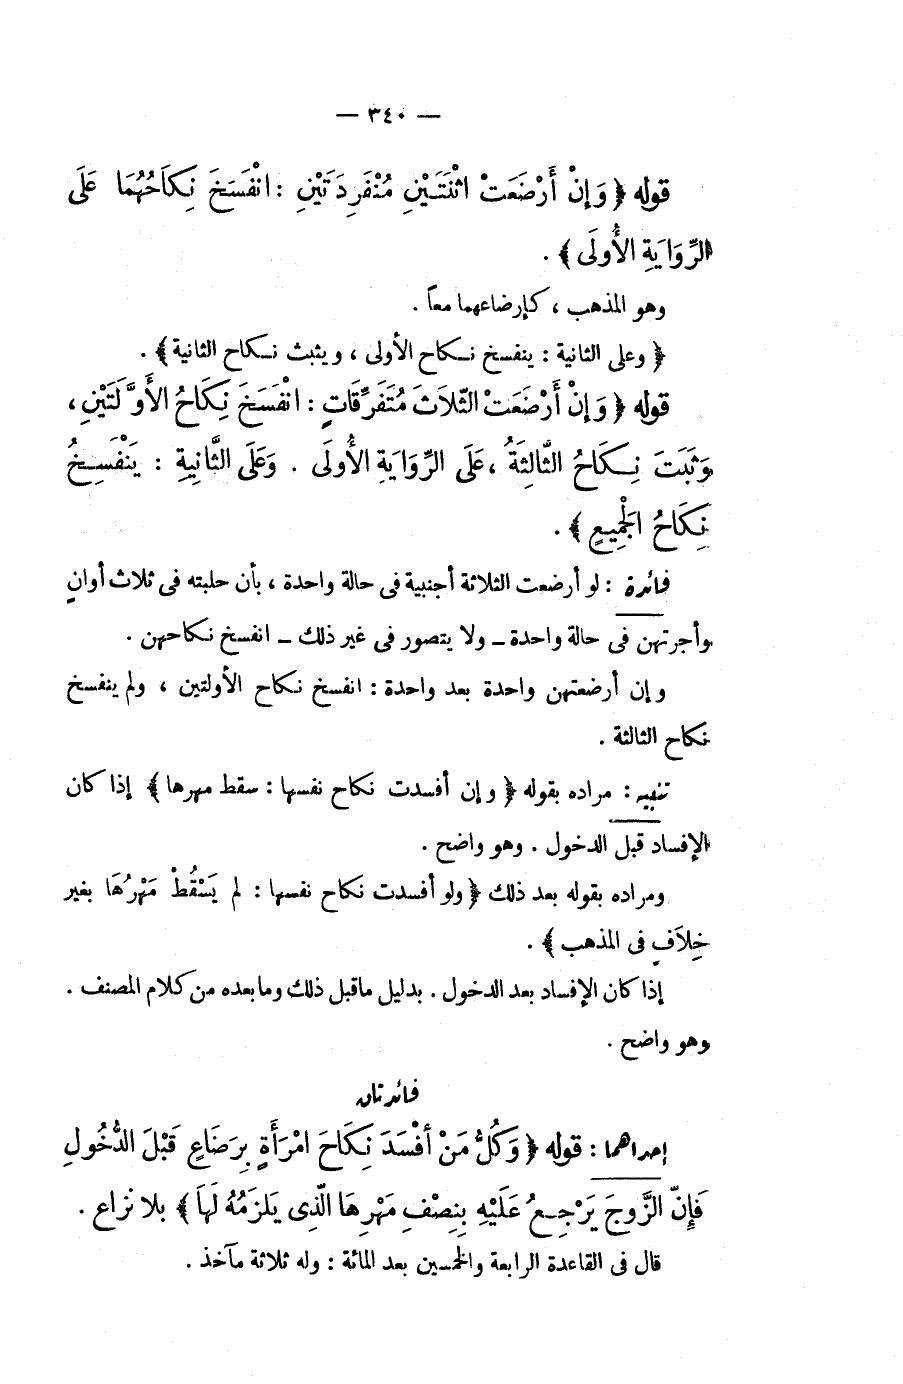 — ٣٤٠ —
قوله ﴿ وَإِنْ أَرْضَعَتْ اثْنَتَيْنِ مُنْفَرِدَتَيْنِ : انْفَسَخَ نِكَاحُهُمَا عَلَى
الرِّوَايَةِ الأُولَى ﴾ .
وهو المذهب ، كإرضاعهما معاً .
﴿ وعلى الثانية : ينفسخ نكاح الأولى ، ويثبت نكاح الثانية ﴾ .
قوله ﴿ وَإِنْ أَرْضَعَتْ الثَّلاَثَ مُتَفَرِّقَاتٍ : انْفَسَخَ نِكَاحُ الأَوَّلَتَيْنِ ،
وَثَبَتَ نِكَاحُ الثَّالِثَةُ ، عَلَى الرِّوَايَةِ الأُولَى . وَعَلَى الثَّانِيَةِ : يَنْفَسِخُ
نِكَاحُ الْجَمِيعِ ﴾ .
فائدة : لو أرضعت الثلاثة أجنبية فى حالة واحدة ، بأن حلبته فى ثلاث أوانٍ
وأجرتهن فى حالة واحدة ــ ولا يتصور فى غير ذلك ــ انفسخ نكاحهن .
وإن أرضعتهن واحدة بعد واحدة : انفسخ نكاح الأولتين ، ولم ينفسخ
نكاح الثالثة .
تنبيه : مراده بقوله ﴿ وإن أفسدت نكاح نفسها : سقط مهرها ﴾ إذا كان
الإفساد قبل الدخول . وهو واضح .
ومراده بقوله بعد ذلك ﴿ ولو أفسدت نكاح نفسها : لم يَسْقُطْ مَهْرُهَا بغير
خِلاَفٍ فى المذهب ﴾ .
إذا كان الإفساد بعد الدخول . بدليل ماقبل ذلك ومابعده من كلام المصنف .
وهو واضح .
فائدتان
إحداهما : قوله ﴿ وَكُلُّ مَنْ أفْسَدَ نِكَاحَ امْرَأَةٍ بِرَضَاعٍ قَبْلَ الدُّخُولِ
فَإِنَّ الزَّوجَ يَرْجِعُ عَلَيْهِ بِنِصْفِ مَهْرِهَا الَّذِى يَلزَمُهُ لَهَا ﴾ بلا نزاع .
قال فى القاعدة الرابعة والخمسين بعد المائة : وله ثلاثة مآخذ .